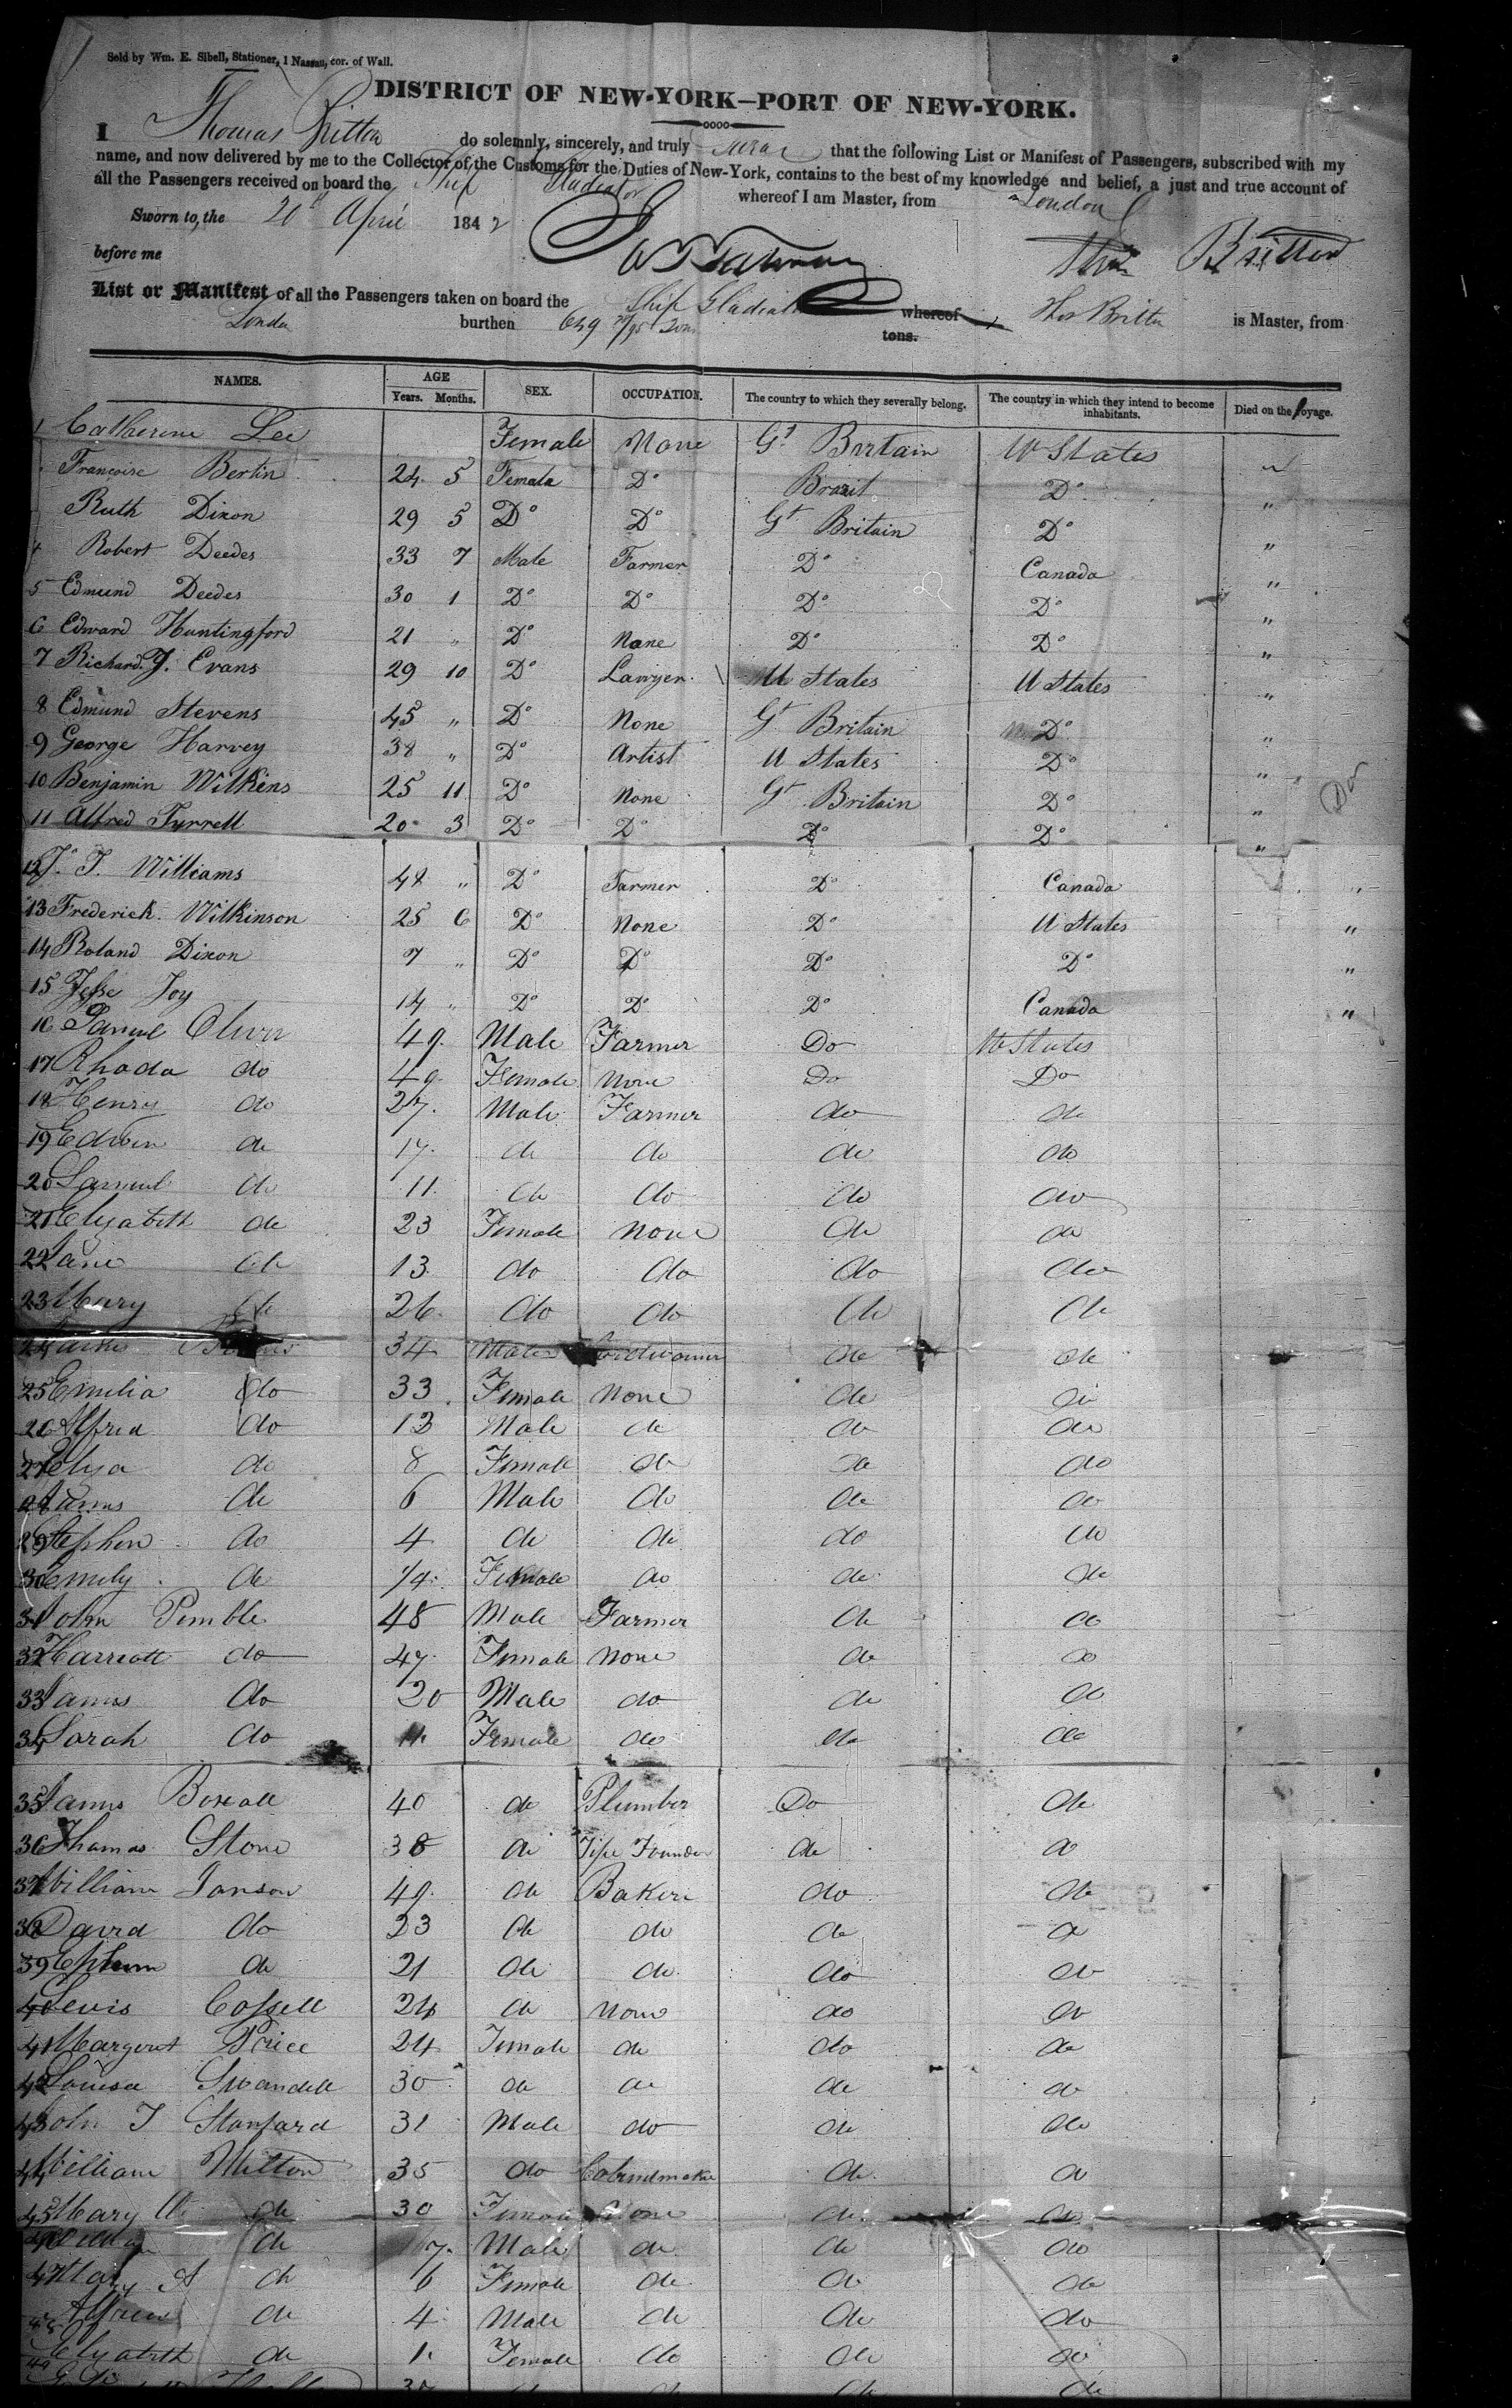 Sold by Wm. E. Sibell, Stationer, 1 Nassau, cor. of Wall.
DISTRICT OF NEW-YORK—PORT OF NEW-YORK.
I Thomas Britton do solemnly, sincerely, and truly swear that the following List or Manifest of Passengers, subscribed with my
name, and now delivered by me to the Collector of the Customs for the Duties of New-York, contains to the best of my knowledge and belief, a just and true account of
all the Passengers received on board the Ship Gladiator whereof I am Master, from London
Sworn to, the 20th April 1842
before me Thos Britton
List or Manifest of all the Passengers taken on board the Ship Gladiator whereof Thos Britton is Master, from
London burthen 649 tons.
NAMES. AGE SEX. OCCUPATION. The country to which they severally belong. The country in which they intend to become inhabitants. Died on the voyage.
Years. Months.
1 Catherine Lee Female None Gt Britain U States
Francoise Bertin 24 5 Female Do Brazil Do "
Ruth Dixon 29 5 Do Do Gt Britain Do "
4 Robert Deedes 33 7 Male Farmer Do Canada "
5 Edmund Deedes 30 1 Do Do Do Do "
6 Edward Huntingford 21 " Do None Do Do "
7 Richard J. Evans 29 10 Do Lawyer U States U States "
8 Edmund Stevens 45 " Do None Gt Britain Do "
9 George Harvey 38 " Do Artist U States Do "
10 Benjamin Wilkins 25 11 Do None Gt Britain Do "
11 Alfred Tyrrell 20 3 Do Do Do Do "
12 J. T. Williams 48 " Do Farmer Do Canada "
13 Frederick Wilkinson 25 6 Do None Do U States "
14 Roland Dixon 7 " Do Do Do Do "
15 Jesse Joy 14 " Do Do Do Canada "
16 Samuel Oliver 49 Male Farmer Do U States
17 Rhoda do 49 Female None Do Do
18 Henry do 27 Male Farmer do do
19 Edwin do 17 do do do do
20 Samuel do 11 do do do do
21 Elizabeth do 23 Female None do do
22 Jane do 13 do do do do
23 Mary do 26 do do do do
24 James 34 Male Cordwainer do do
25 Emilia do 33 Female None do do
26 Alfred do 13 Male do do do
27 Eliza do 8 Female do do do
28 James do 6 Male do do do
29 Stephen do 4 do do do do
30 Emily do 1/4 Female do do do
31 John Pemble 48 Male Farmer do do
32 Harriott do 47 Female None do do
33 James do 20 Male do do do
34 Sarah do 11 Female do do do
35 James Boxall 40 do Plumber Do do
36 Thomas Stone 38 do Tipe Founder do do
37 William Janson 49 do Baker do do
38 David do 23 do do do do
39 do 21 do do do do
40 Lewis Cossell 24 do None do do
41 Margeret Price 24 Female do do do
42 Louisa Swandell 30 do do do do
43 John T Stanford 31 Male do do do
44 William Milton 35 do Cabinetmaker do do
45 Mary do 30 Female None do do
46 William do 7 Male do do do
47 Mary A do 6 Female do do do
48 Alfred do 4 Male do do do
49 Elizabeth do 1 Female do do do